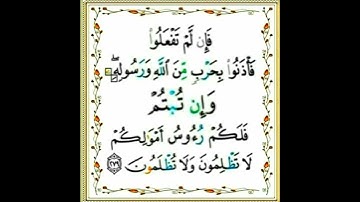 فَإِن لَّمْ تَفْعَلُوا۟
فَأْذَنُوا۟ بِحَرْبٍ مِّنَ ٱللَّهِ وَرَسُولِهِۦ ۖ
وَإِن تُبْتُمْ
فَلَكُمْ رُءُوسُ أَمْوَٰلِكُمْ
لَا تَظْلِمُونَ وَلَا تُظْلَمُونَ ﴿٢٧٩﴾